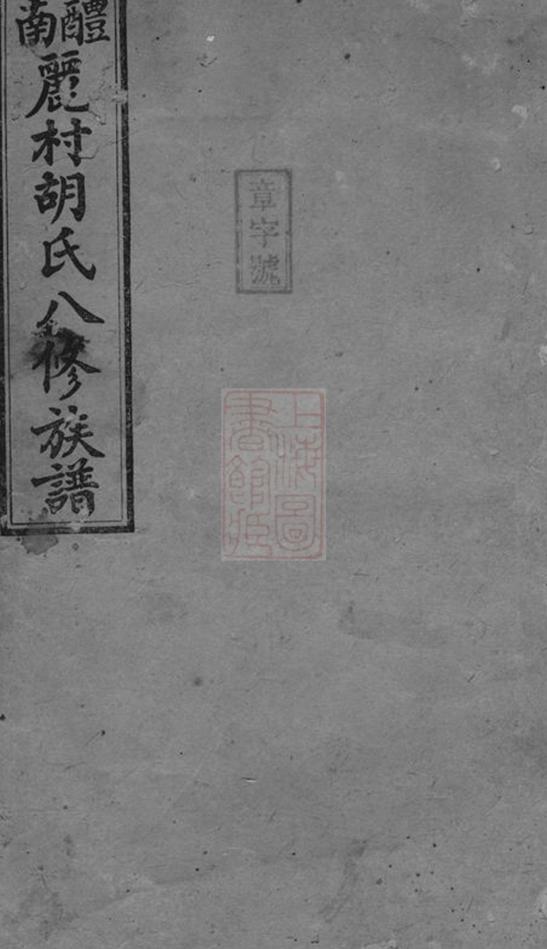 醴南麗村胡氏八修族譜
章字號
上海圖
書館藏